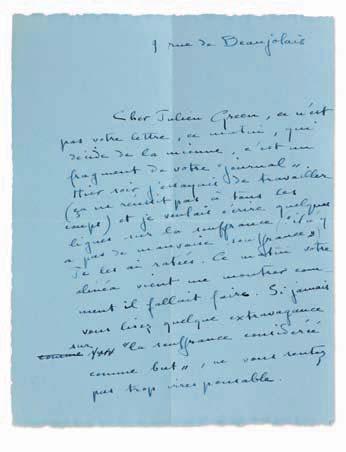 9 rue de Beaujolais
Cher Julien Green, ce n'est
pas votre lettre, ce matin, qui
décide de la mienne, c'est un
fragment de votre "journal".
Hier soir j'essayais de travailler
(ça ne réussit pas à tous les
coups) et je voulais écrire quelques
lignes sur la souffrance (il n'y
a pas de mauvaise souffrance)
je les ai ratées. Ce matin votre
alinéa vient me montrer com
ment il fallait faire. Si jamais
vous lisez quelque extravagance
sur "la souffrance considérée
comme but", ne vous sentez
pas trop irresponsable.